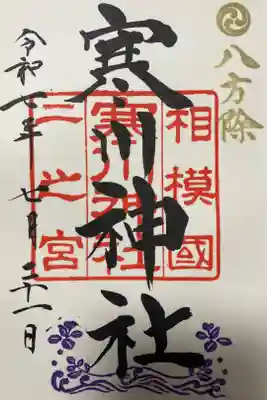 八方除
相模國
寒川神社
寒川神社
一之宮
令和七年 七月 二十一日